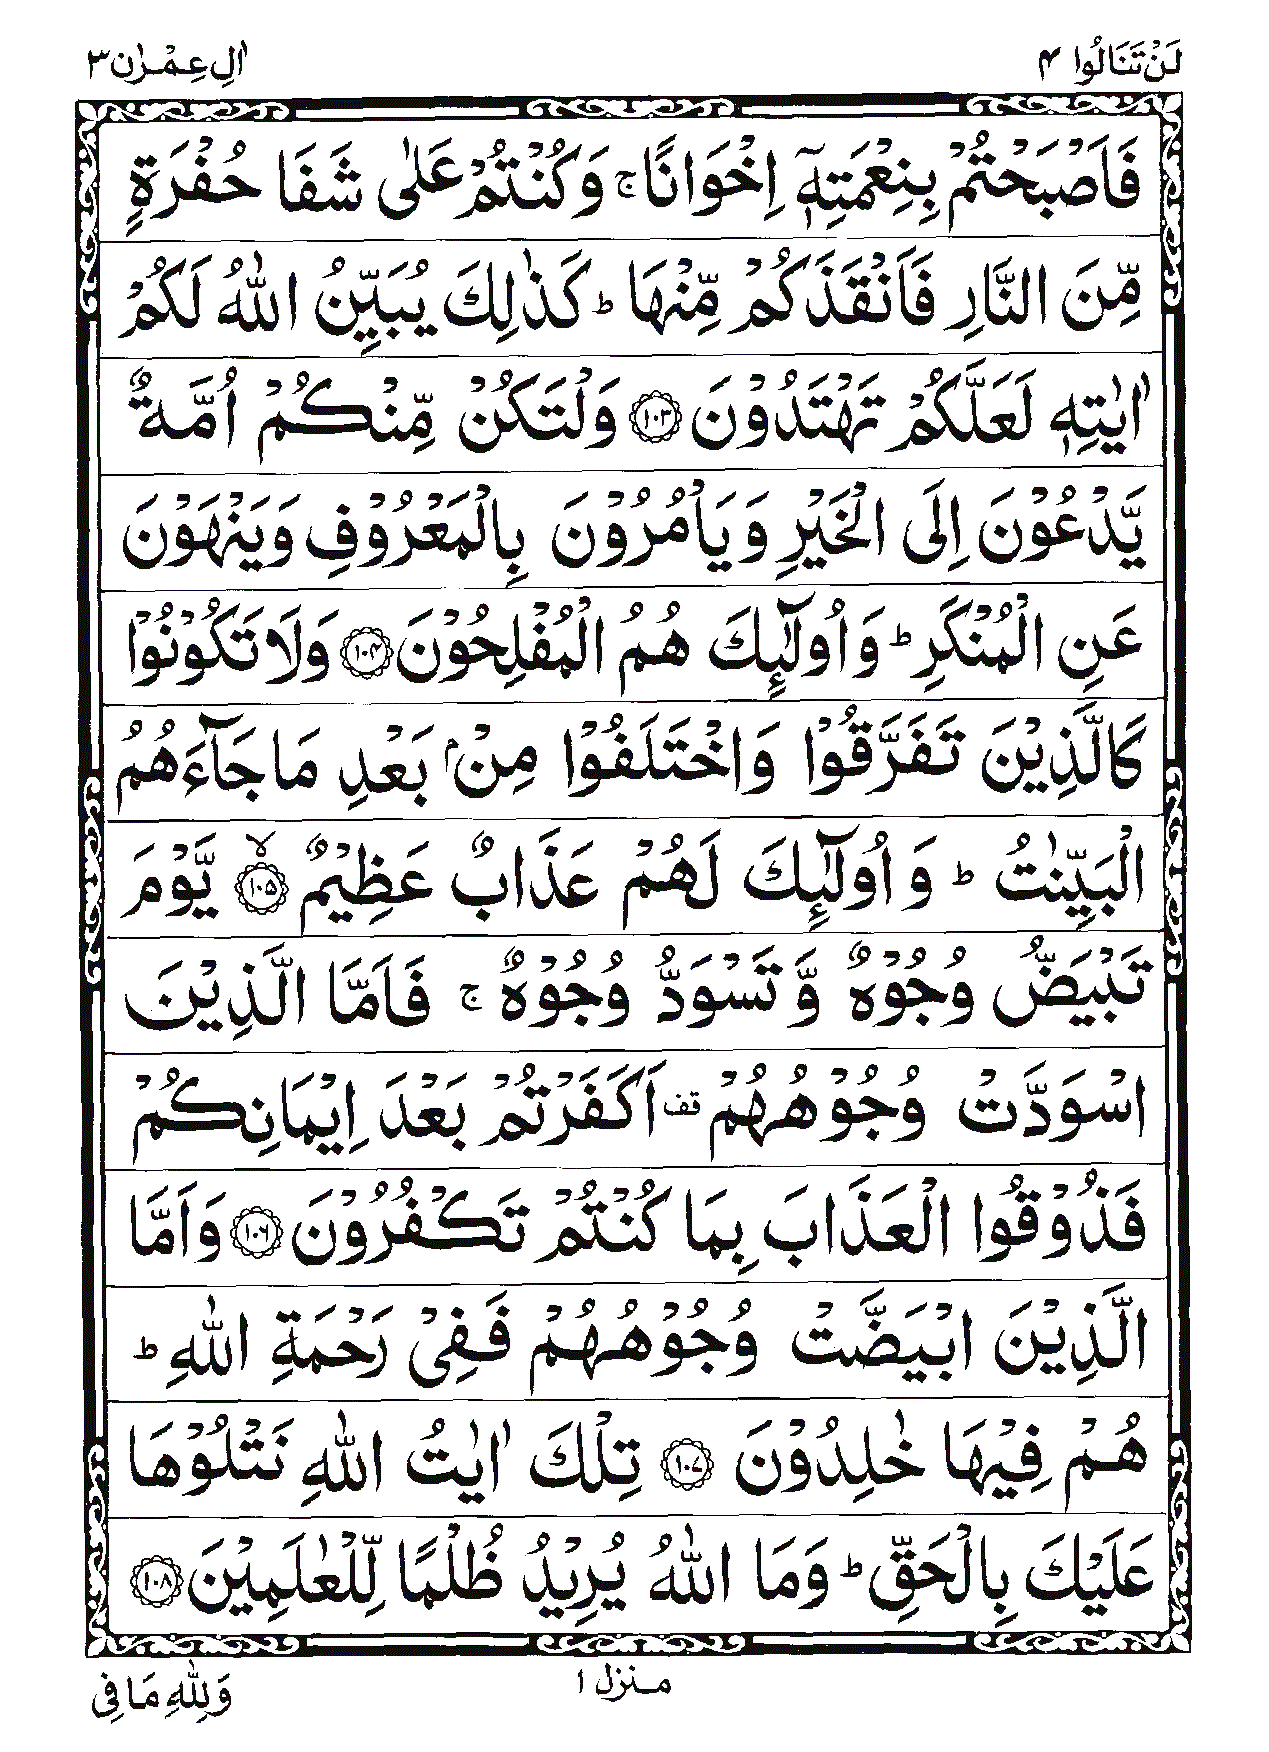 لَنْ تَنَالُوا ۴
اٰلِ عِمْرٰن ۳
فَاَصْبَحْتُمْ بِنِعْمَتِهٖٓ اِخْوَانًا ۚ وَكُنْتُمْ عَلٰى شَفَا حُفْرَةٍ
مِّنَ النَّارِ فَاَنْقَذَكُمْ مِّنْهَا ؕ كَذٰلِكَ يُبَيِّنُ اللّٰهُ لَكُمْ
اٰيٰتِهٖ لَعَلَّكُمْ تَهْتَدُوْنَ ﴿۱۰۳﴾ وَلْتَكُنْ مِّنْكُمْ اُمَّةٌ
يَّدْعُوْنَ اِلَى الْخَيْرِ وَيَاْمُرُوْنَ بِالْمَعْرُوْفِ وَيَنْهَوْنَ
عَنِ الْمُنْكَرِ ؕ وَاُولٰٓئِكَ هُمُ الْمُفْلِحُوْنَ ﴿۱۰۴﴾ وَلَا تَكُوْنُوْا
كَالَّذِيْنَ تَفَرَّقُوْا وَاخْتَلَفُوْا مِنْۢ بَعْدِ مَا جَآءَهُمُ
الْبَيِّنٰتُ ؕ وَاُولٰٓئِكَ لَهُمْ عَذَابٌ عَظِيْمٌ ﴿۱۰۵﴾ ۙ يَّوْمَ
تَبْيَضُّ وُجُوْهٌ وَّتَسْوَدُّ وُجُوْهٌ ۚ فَاَمَّا الَّذِيْنَ
اسْوَدَّتْ وُجُوْهُهُمْ قف اَكَفَرْتُمْ بَعْدَ اِيْمَانِكُمْ
فَذُوْقُوا الْعَذَابَ بِمَا كُنْتُمْ تَكْفُرُوْنَ ﴿۱۰۶﴾ وَاَمَّا
الَّذِيْنَ ابْيَضَّتْ وُجُوْهُهُمْ فَفِيْ رَحْمَةِ اللّٰهِ ؕ
هُمْ فِيْهَا خٰلِدُوْنَ ﴿۱۰۷﴾ تِلْكَ اٰيٰتُ اللّٰهِ نَتْلُوْهَا
عَلَيْكَ بِالْحَقِّ ؕ وَمَا اللّٰهُ يُرِيْدُ ظُلْمًا لِّلْعٰلَمِيْنَ ﴿۱۰۸﴾
منزل ۱
وَلِلّٰهِ مَا فِي